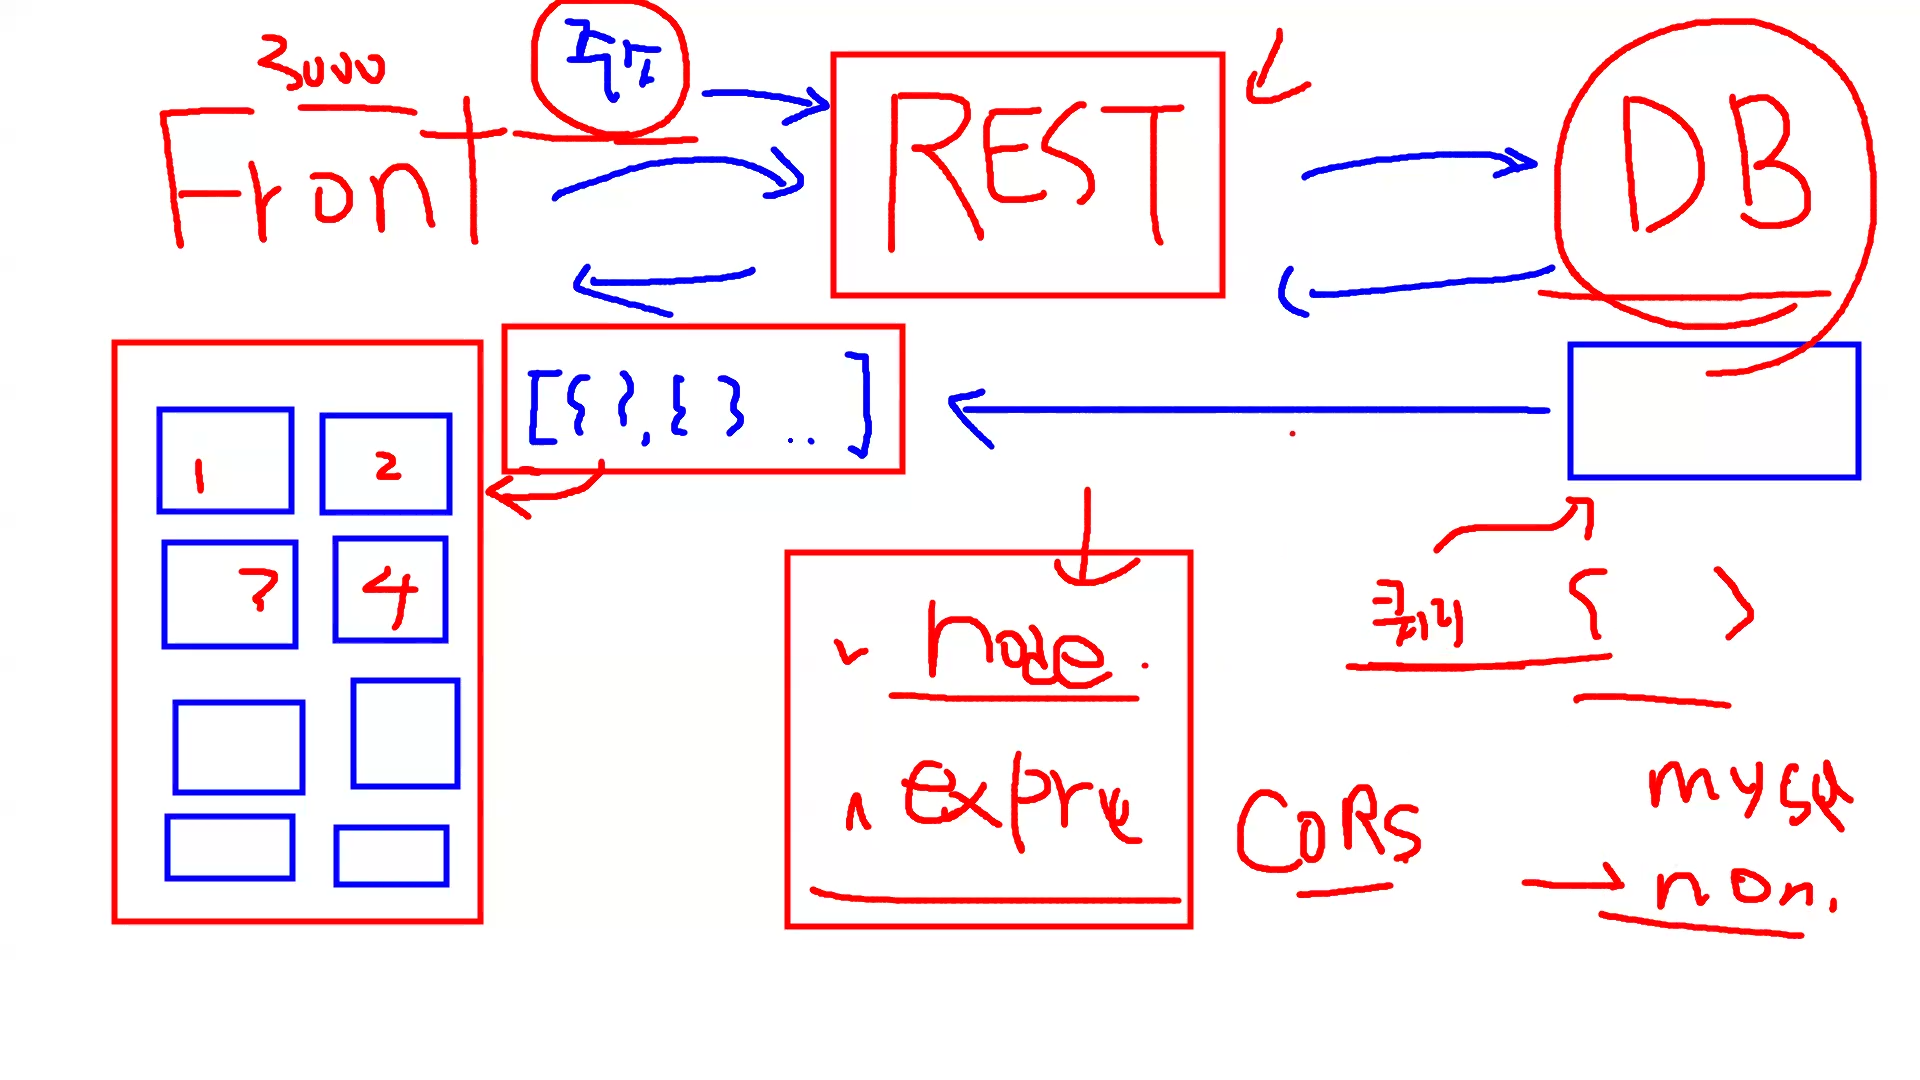 3000
Front
REST
DB
[{ }, { } .. ]
1 2
? 4
node.
expre
CORS
{ }
mysql
non.